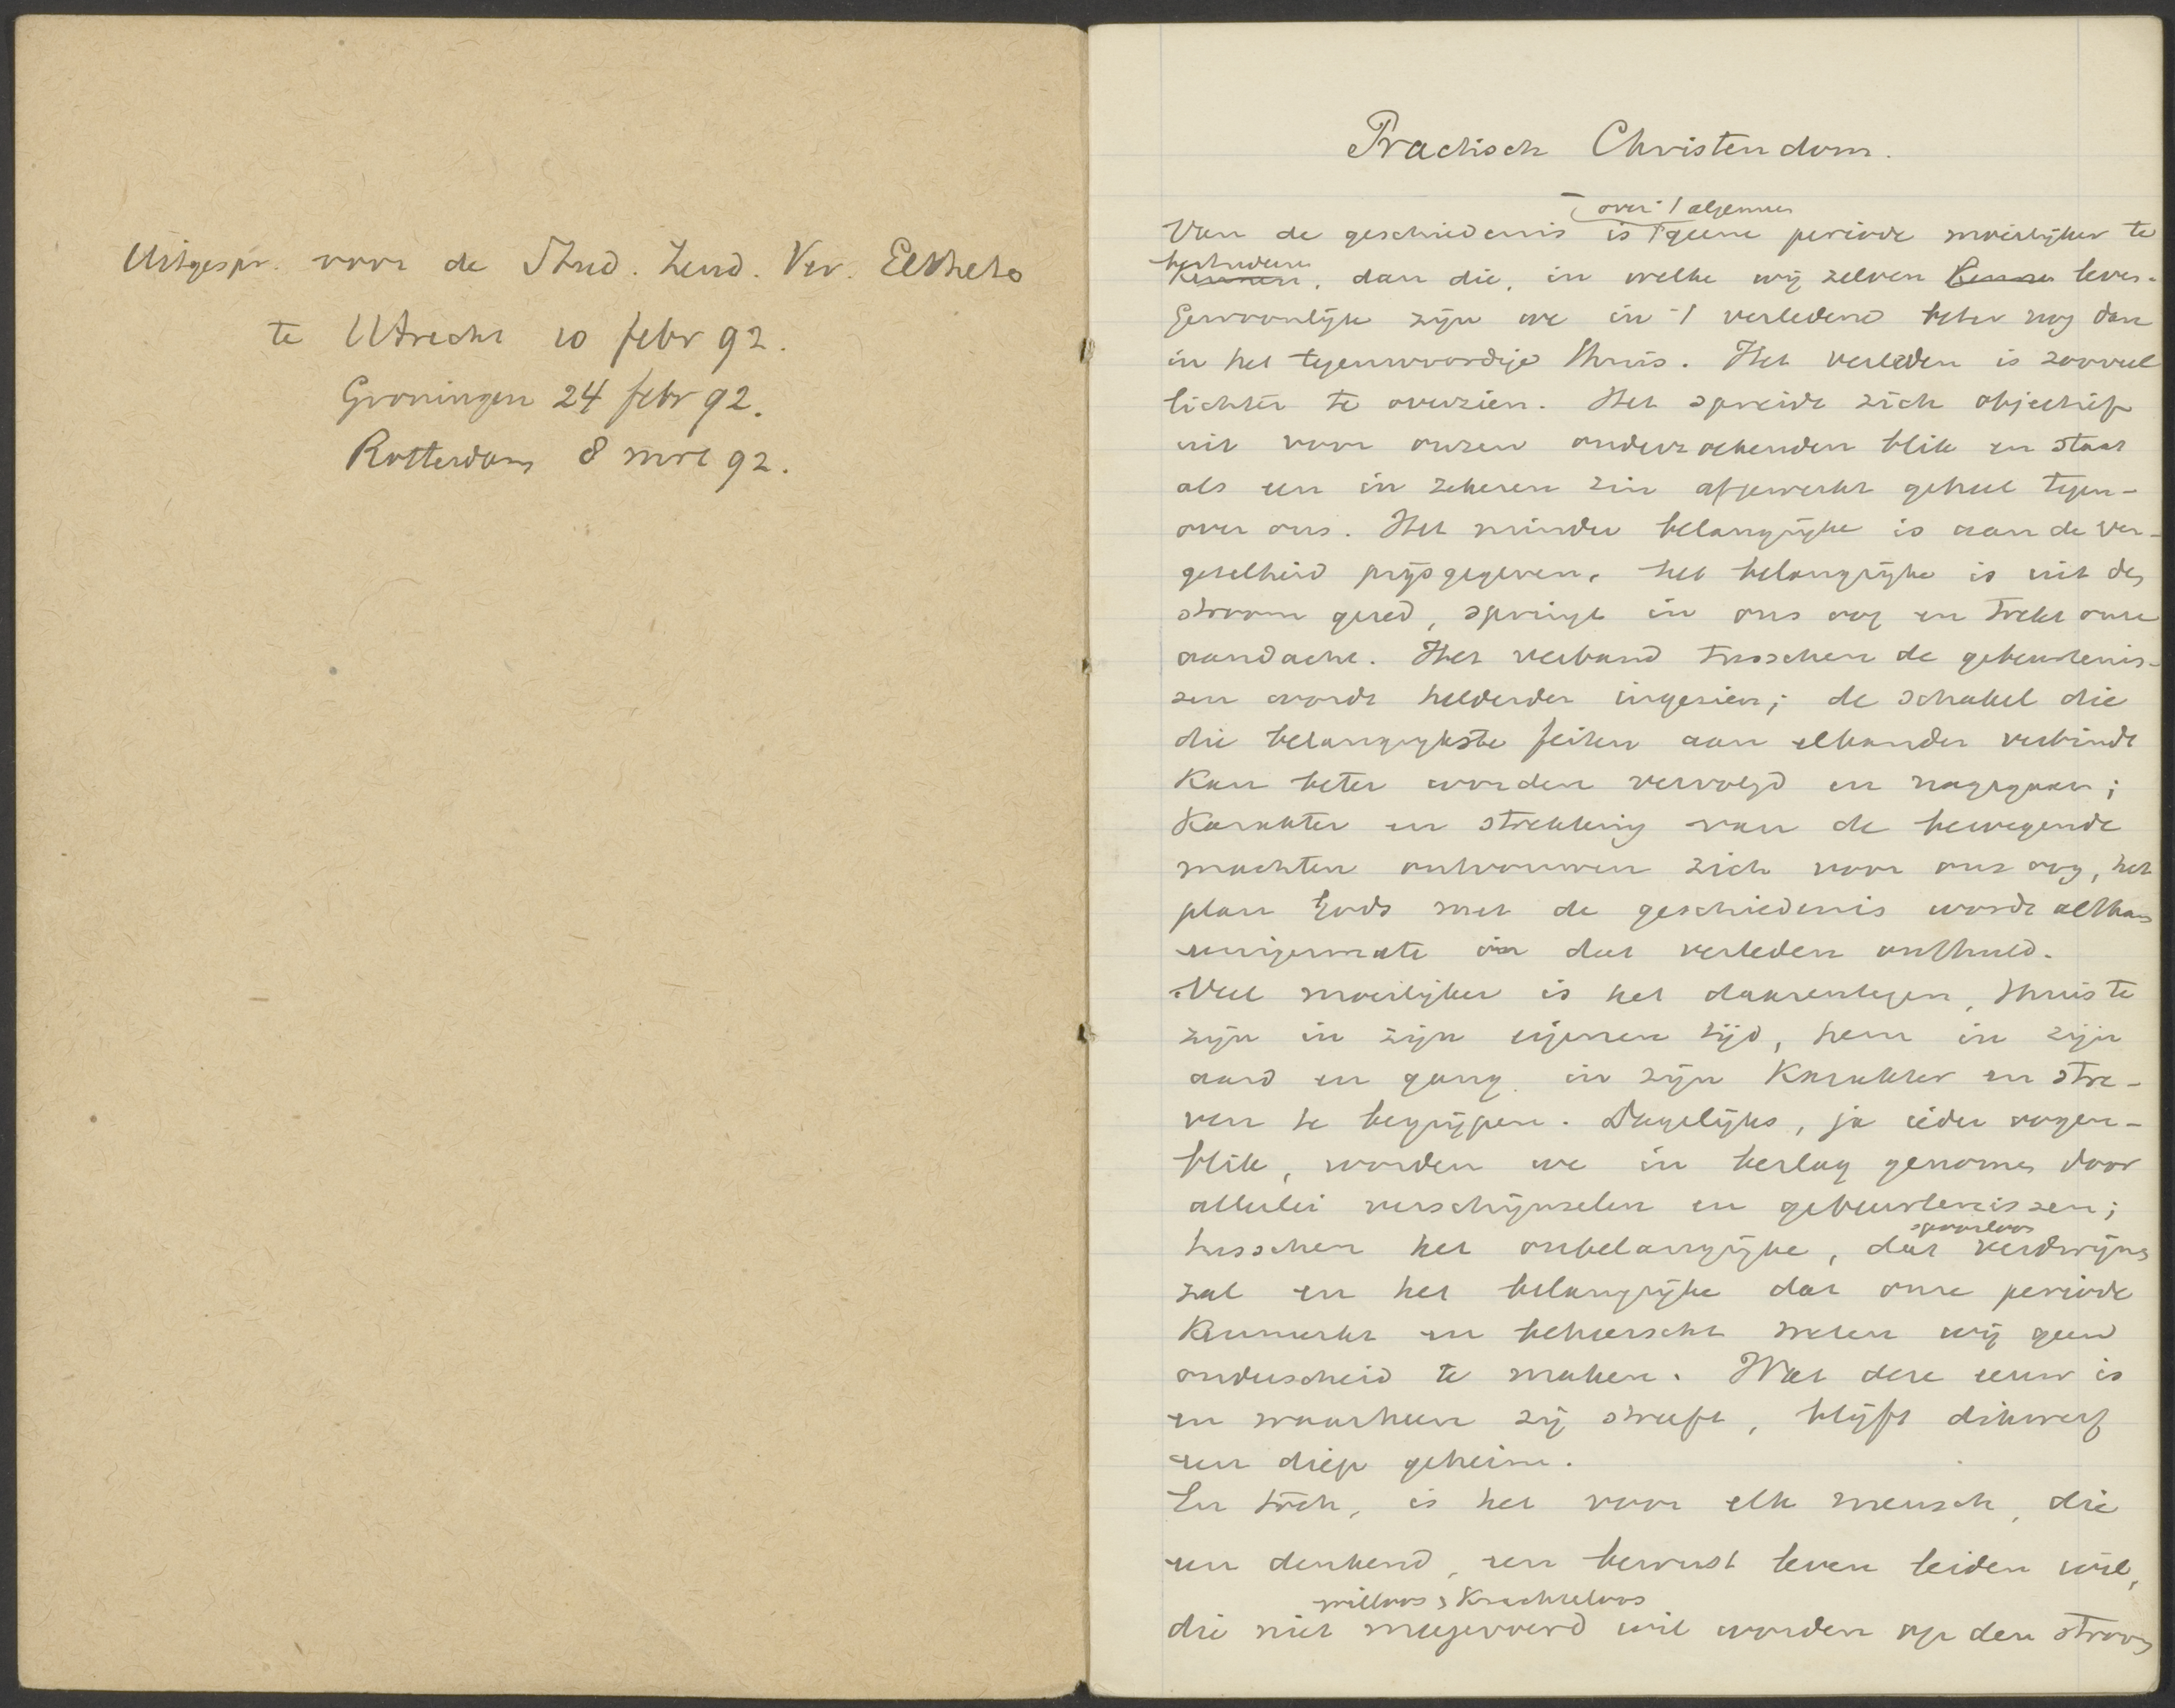 Uitgespr. voor de Stud. Zend. Ver. Eltheto
te Utrecht 10 febr 92.
Groningen 24 febr 92.
Rotterdam 8 mrt 92.
Practisch Christendom.
over 't algemeen
Van de geschiedenis is geene periode moeilijker te
bestudeeren
kennen, dan die, in welke wij zelven kennen leven.
Gewoonlijk zijn we in 't verledene beter nog dan
in het tegenwoordige thuis. Het verleden is zooveel
lichter te overzien. Het spreidt zich objectief
uit voor onzen onderzoekenden blik en staat
als een in zekeren zin afgewerkt geheel tegen-
over ons. Het minder belangrijke is aan de ver-
getelheid prijsgegeven, het belangrijke is uit den
stroom gered, springt in ons oog en trekt onze
aandacht. Het verband tusschen de gebeurtenis-
sen wordt helderder ingezien; de schakel die
die belangrijkste feiten aan elkander verbindt
kan beter worden vervolgd en nagegaan;
karakter en strekking van de bewegende
machten ontvouwen zich voor ons oog, het
plan Gods met de geschiedenis wordt althans
eenigermate in dat verleden onthuld.
Veel moeilijker is het daarentegen, thuis te
zijn in zijn eigenen tijd, hem in zijn
aard en gang, in zijn karakter en stre-
ven te begrijpen. Dagelijks, ja ieder oogen-
blik, worden we in beslag genomen door
allerlei verschijnselen en gebeurtenissen;
spoorloos
tusschen het onbelangrijke, dat verdwijnen
zal en het belangrijke dat onze periode
kenmerkt en beheerscht weten wij geen
onderscheid te maken. Wat deze eeuw is
en waarheen zij streeft, blijft dikwerf
een diep geheim.
En toch, is het voor elk mensch, die
een denkend, een bewust leven leiden wil,
willoos, krachteloos
die niet meegevoerd wil worden op den stroom